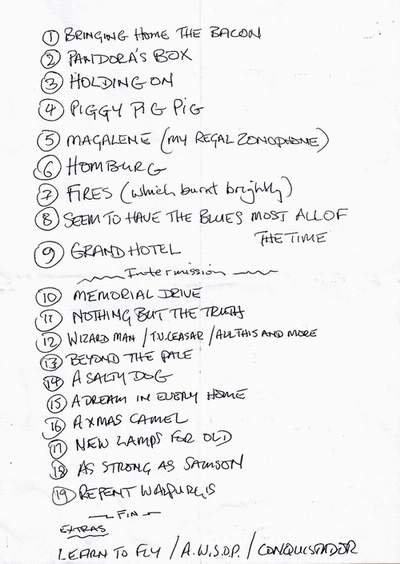 1 BRINGING HOME THE BACON
2 PANDORA'S BOX
3 HOLDING ON
4 PIGGY PIG PIG
5 MAGALENE (MY REGAL ZONOPHONE)
6 HOMBURG
7 FIRES (which burnt brightly)
8 SEEM TO HAVE THE BLUES MOST ALL OF
THE TIME
9 GRAND HOTEL
Intermission
10 MEMORIAL DRIVE
11 NOTHING BUT THE TRUTH
12 WIZARD MAN / T.V. CEASAR / ALL THIS AND MORE
13 BEYOND THE PALE
14 A SALTY DOG
15 A DREAM IN EVERY HOME
16 A XMAS CAMEL
17 NEW LAMPS FOR OLD
18 AS STRONG AS SAMSON
19 REPENT WALPURGIS
FIN
EXTRAS
LEARN TO FLY / A.W.S.O.P. / CONQUISTADOR